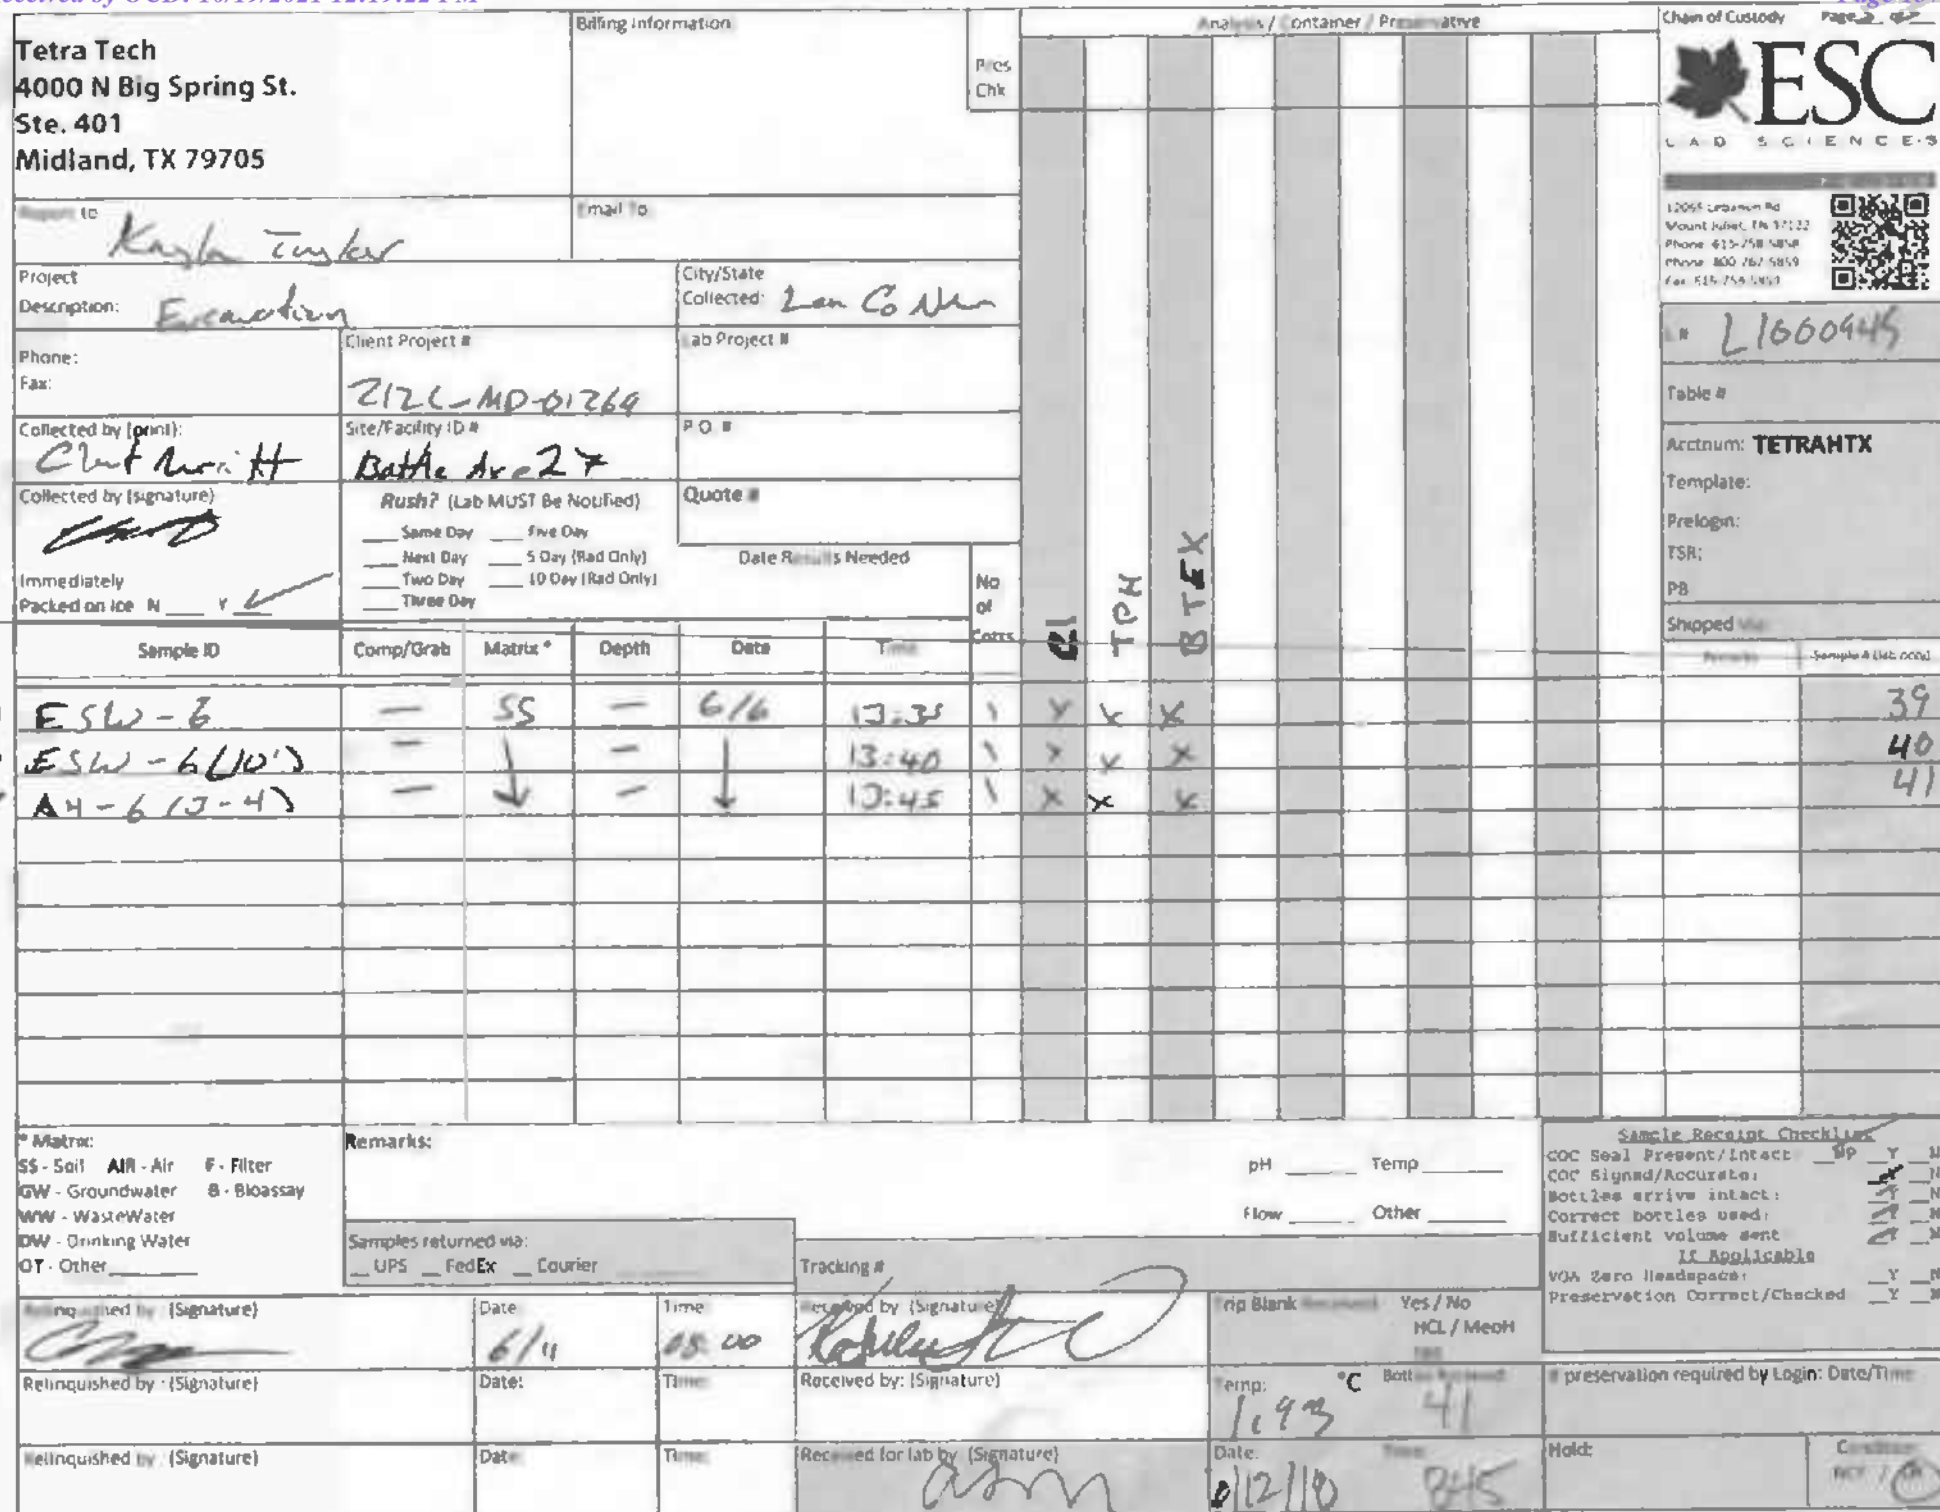 Received by OCD: 10/19/2021 12:19:22 PM
Tetra Tech
4000 N Big Spring St.
Ste. 401
Midland, TX 79705
Billing Information
Pres
Chk
Analysis / Container / Preservative
Chain of Custody Page 2 of
ESC
LAB SCIENCES
12065 Lebanon Rd
Mount Juliet, TN 37122
Phone: 615-758-5858
Phone: 800-767-5859
Fax: 615-758-5859
Report to
Email To
Project
Description: Excavation
City/State
Collected:
Phone:
Fax:
Client Project #
212C-MD-01269
Lab Project #
L # L1000945
Table #
Acctnum: TETRAHTX
Template:
Prelogin:
TSR:
PB
Shipped Via:
Collected by (print):
Site/Facility ID #
Battle Axe 27
P.O. #
Collected by (signature)
Rush? (Lab MUST Be Notified)
Same Day Five Day
Next Day 5 Day (Rad Only)
Two Day 10 Day (Rad Only)
Three Day
Quote #
Date Results Needed
Immediately
Packed on Ice N Y
No
of
Cntrs
Cl
TPH
BTEX
Sample ID Comp/Grab Matrix * Depth Date Time Remarks Sample # (lab only)
ESW-6 — SS — 6/6 13:35 1 X X X 39
ESW-6(10') — — 13:40 1 X X X 40
AH-6 (3-4) — — 13:45 1 X X X 41
* Matrix:
SS - Soil AIR - Air F - Filter
GW - Groundwater B - Bioassay
WW - WasteWater
DW - Drinking Water
OT - Other
Remarks:
pH Temp
Flow Other
Samples returned via:
UPS FedEx Courier
Tracking #
Sample Receipt Checklist
COC Seal Present/Intact: NP Y N
COC Signed/Accurate: N
Bottles arrive intact: Y N
Correct bottles used: Y N
Sufficient volume sent: Y N
If Applicable
VOA Zero Headspace: Y N
Preservation Correct/Checked: Y N
Relinquished by : (Signature)
Date:
6/11
Time:
08:00
Received by: (Signature)
Trip Blank Received: Yes / No
HCL / MeoH
Relinquished by : (Signature)
Date:
Time:
Received by: (Signature)
Temp: °C
Bottles Received:
41
If preservation required by Login: Date/Time
Relinquished by : (Signature)
Date:
Time:
Received for lab by: (Signature)
Date:
Time:
845
Hold:
Condition:
NCF / OK